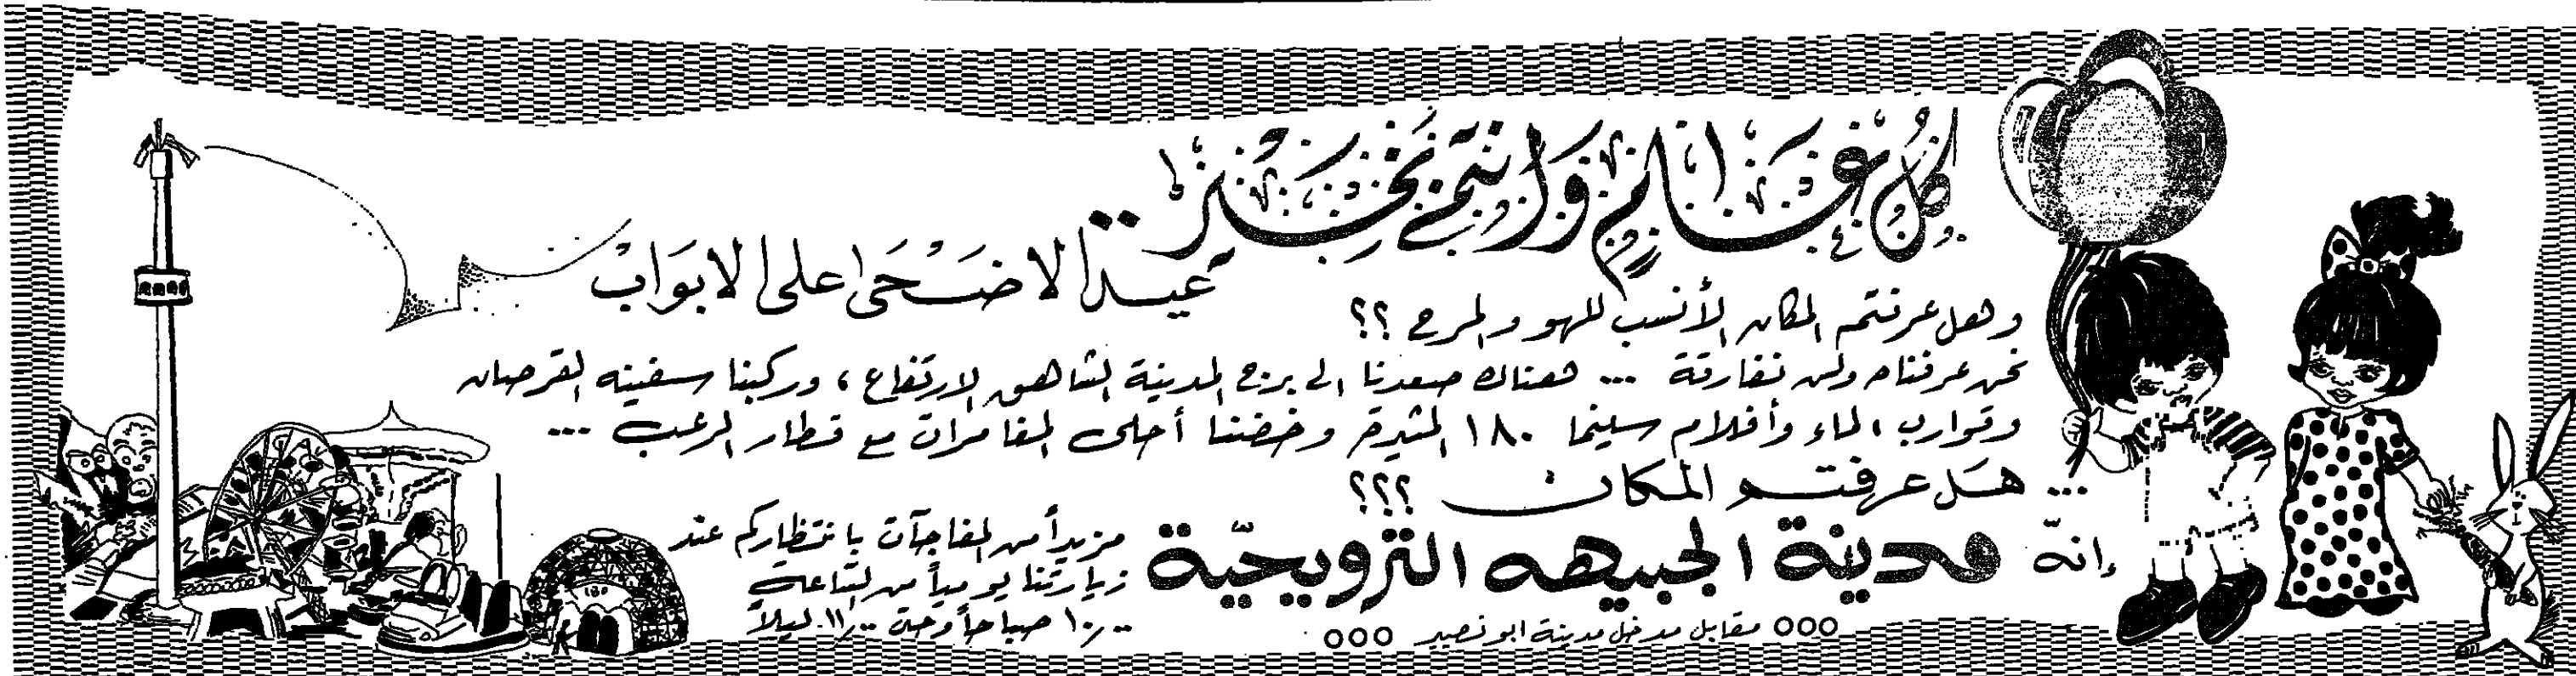 كل عام وانتم بخير
عيد الاضحى على الابواب
وهل عرفتم المكان الأنسب للهو والمرح ؟؟
نحن عرفناه ولن نفارقة ... هناك صعدنا الى برج المدينة الشاهق الارتفاع ، وركبنا سفينه القرصان
وقوارب الماء وأفلام سينما ١٨٠ المثيرة وخضنا أحلى المغامرات مع قطار الرعب ...
... هل عرفتم المكان ؟؟؟
إنه مدينة الجبيهه الترويحية
ooo مقابل مدخل مدينة ابو نصير ooo
مزيداً من المفاجآت بانتظاركم عند
زيارتنا يومياً من الساعة
١٠٫٠٠ صباحاً وحتى ١١٫٠٠ ليلاً
١٨٠